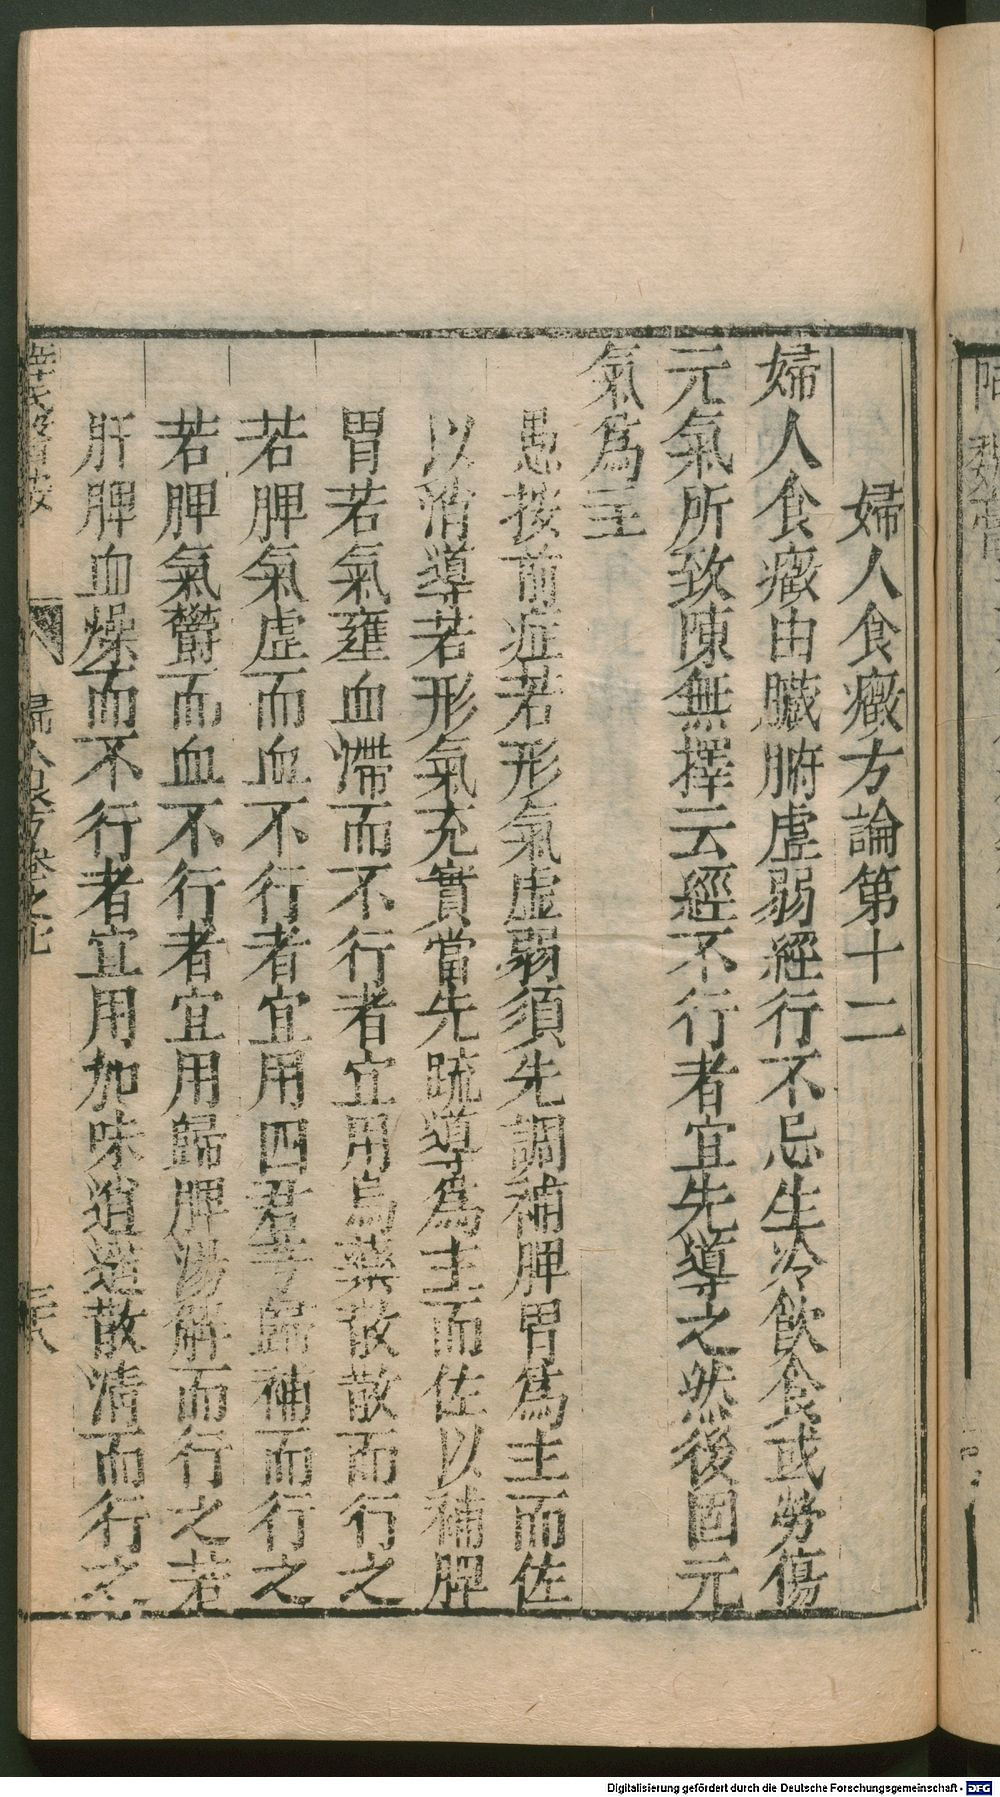 婦人食癥方論第十二
婦人食癥由臟腑虛弱經行不忌生冷飲食或勞傷
元氣所致陳無擇云經不行者宜先導之然後固元
氣為主
愚按前症若形氣虛弱須先調補脾胃為主而佐
以消導若形氣充實當先疏導為主而佐以補脾
胃若氣壅血滯而不行者宜用烏藥散散而行之
若脾氣虛而血不行者宜用四君芎歸補而行之
若脾氣鬱而血不行者宜用歸脾湯解而行之若
肝脾血燥而不行者宜用加味逍遙散清而行之
薛氏醫按
婦人良方卷之七
Digitalisierung gefördert durch die Deutsche Forschungsgemeinschaft - DFG